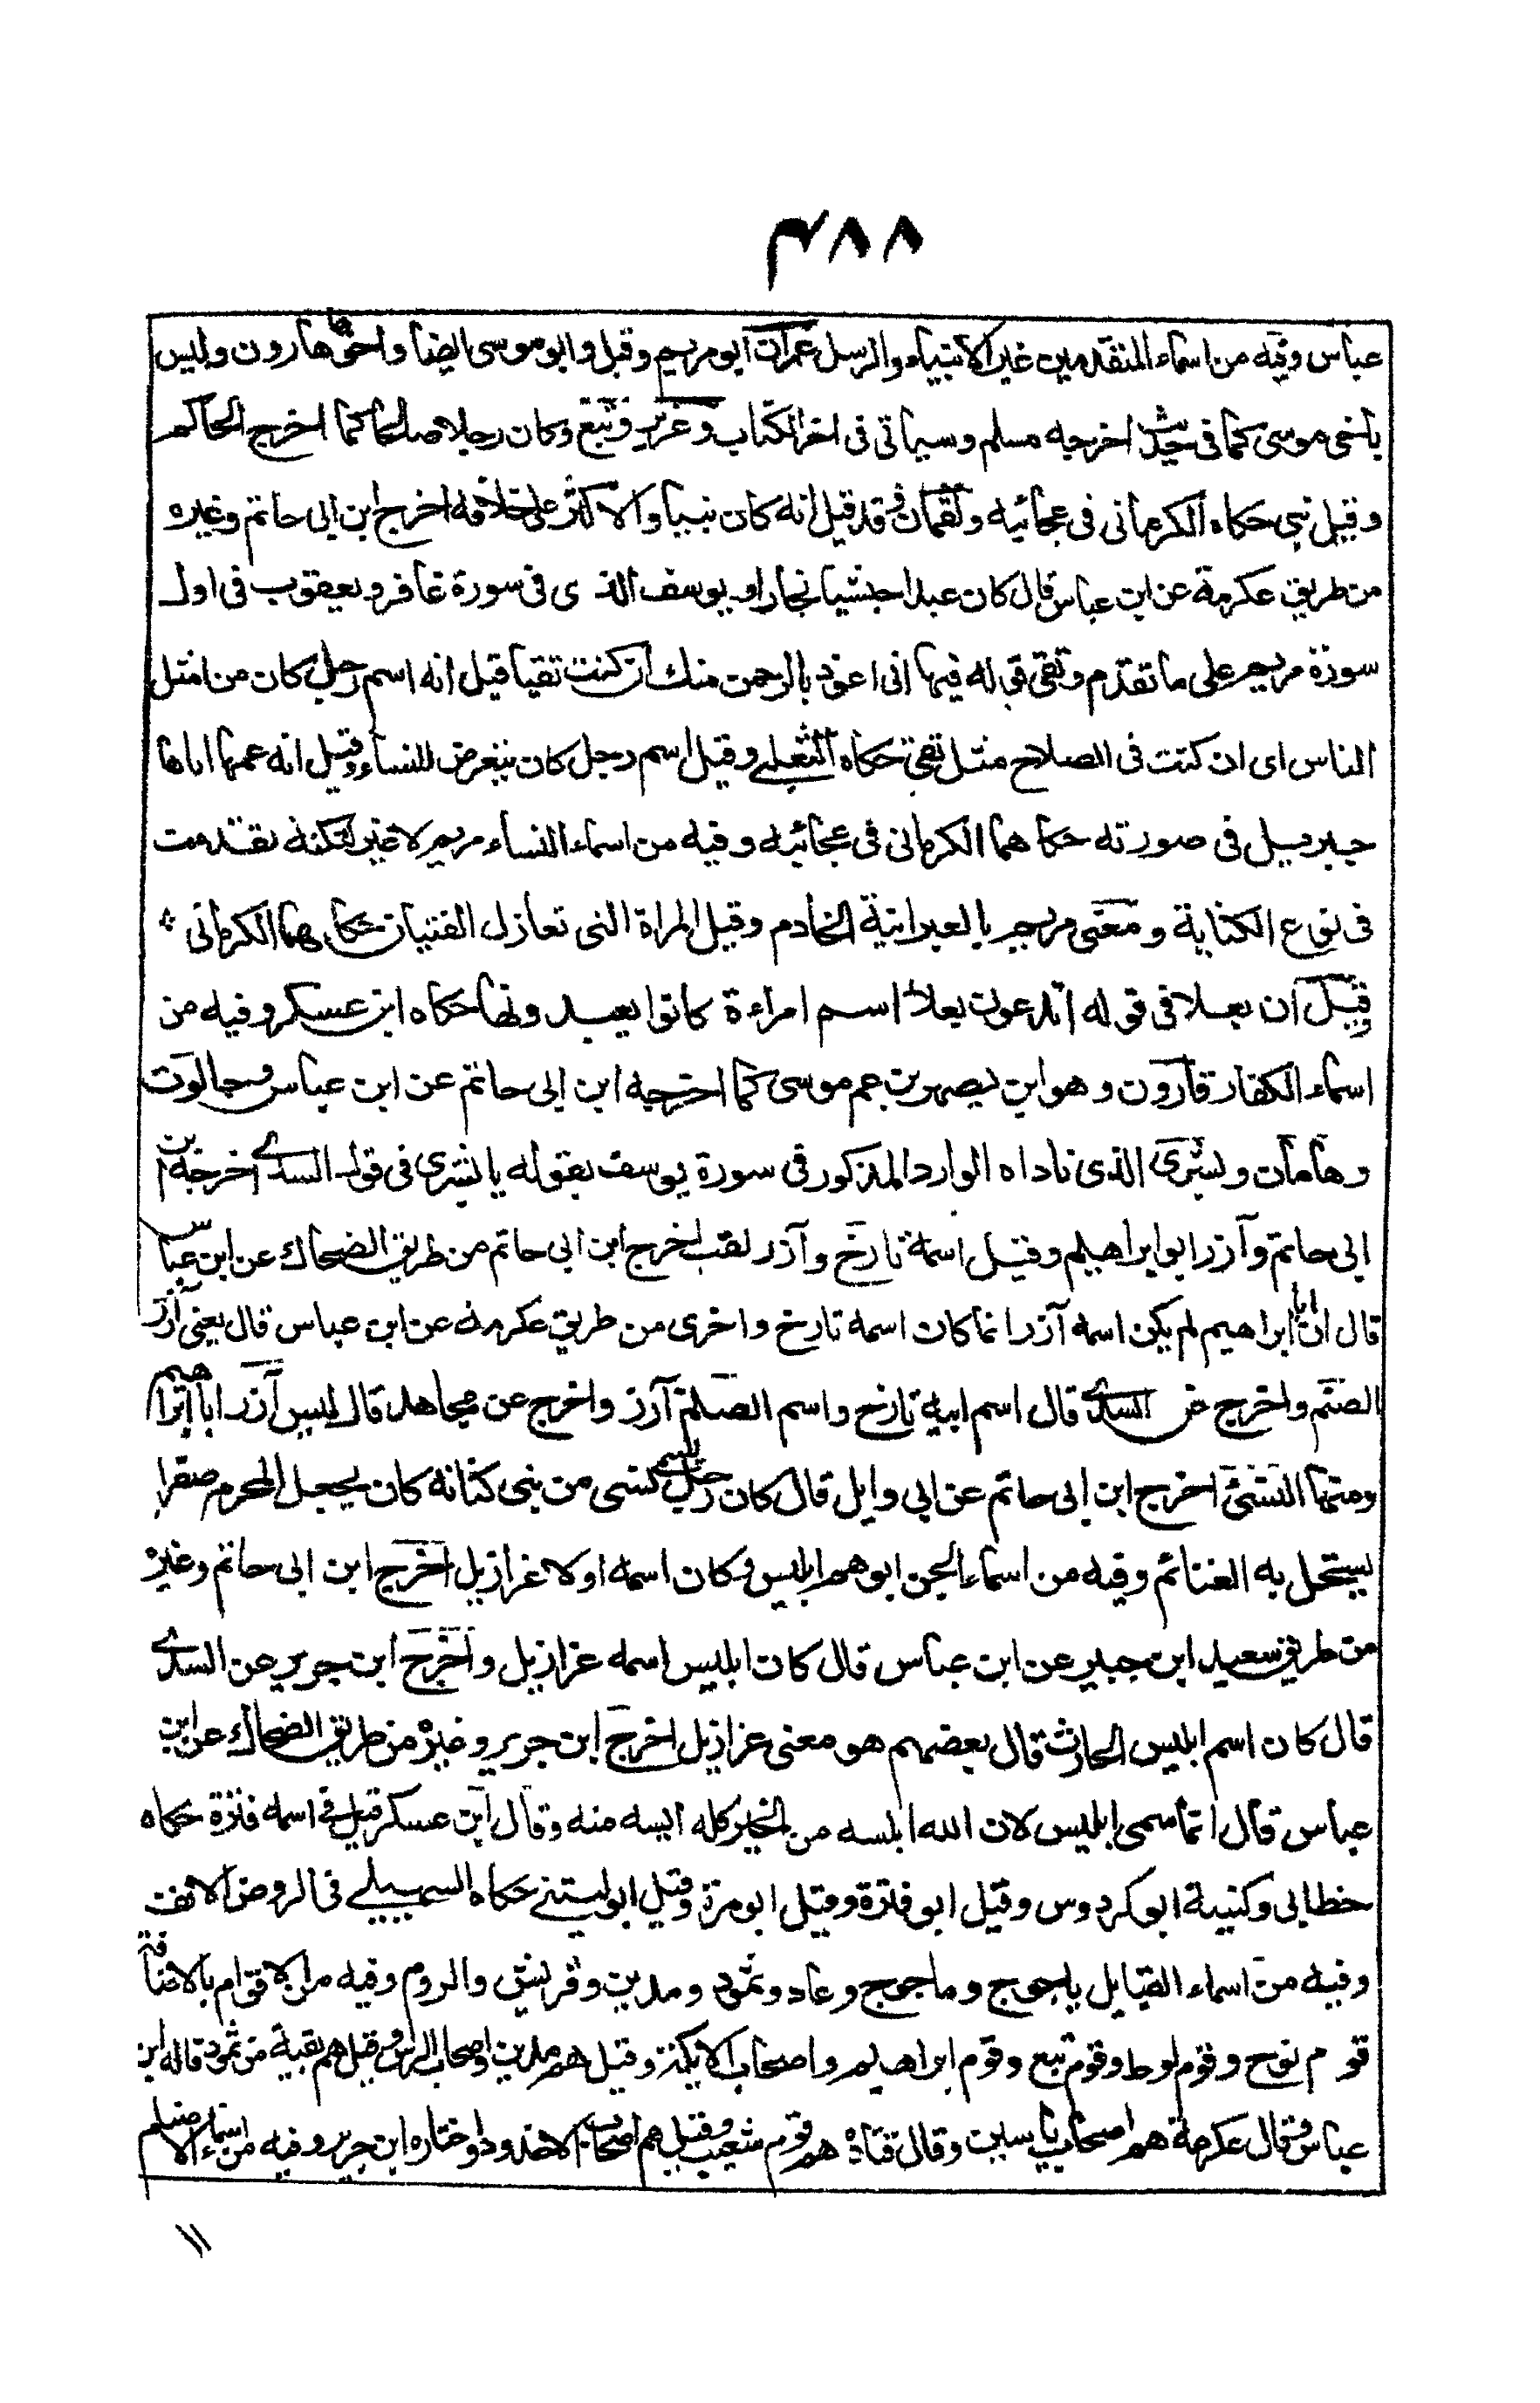 ٤٨٨
عباس وفيه من اسماء المتقدمين غير الانبياء والرسل عمران ابو مريم وقيل وابو موسى ايضا واخوها هارون وليس
باخى موسى كما فى حديث اخرجه مسلم وسياتى فى اخر الكتاب وعزير وتبع وكان رجلا صالحا كما اخرج الحاكم
وقيل نبى حكاه الكرمانى فى عجائبه ولقمان وقد قيل انه كان نبيا والاكثر على خلافه اخرج ابن ابى حاتم وغيره
من طريق عكرمة عن ابن عباس قال كان عبدا حبشيا نجارا و يوسف الذى فى سورة غافر ويعقوب فى اول
سورة مريم على ما تقدم وتقى قوله فيها انى اعوذ بالرحمن منك ان كنت تقيا قيل انه اسم رجل كان من امثل
الناس اى ان كنت فى الصلاح مثل تقى حكاه الثعلبى وقيل اسم رجل كان يتعرض للنساء وقيل انه عمها اتاها
جبريل فى صورته حكاهما الكرمانى فى عجائبه وفيه من اسماء النساء مريم لا غير لنكتة تقدمت
فى نوع الكناية ومعنى مريم بالعبرانية الخادم وقيل المراة التى تغازل الفتيان حكاهما الكرمانى
وقيل ان بعلا فى قوله اتدعون بعلا اسم امراءة كانوا يعبدونها حكاه ابن عسكر وفيه من
اسماء الكفار قارون وهو ابن يصهر بن عم موسى كما اخرجه ابن ابى حاتم عن ابن عباس وجالوت
وهامان وبشرى الذى ناداه الوارد المذكور فى سورة يوسف بقوله يا بشرى فى قول السدى اخرجه ابن
ابى حاتم وآزر ابو ابراهيم وقيل اسمه تارخ وآزر لقب اخرج ابن ابى حاتم من طريق الضحاك عن ابن عباس
قال ان ابا ابراهيم لم يكن اسمه آزر انما كان اسمه تارخ واخرى من طريق عكرمة عن ابن عباس قال يعنى آزر
الصنم واخرج عن السدى قال اسم ابيه تارخ واسم الصنم آزر واخرج عن مجاهد قال ليس آزر ابا ابراهيم
ومنها النسئ اخرج ابن ابى حاتم عن ابى وايل قال كان رجل يسمى نسى من بنى كنانة كان يجعل المحرم صفرا
يستحل به الغنائم وفيه من اسماء الجن ابوهم ابليس وكان اسمه اولا عزازيل اخرج ابن ابى حاتم وغيره
من طريق سعيد ابن جبير عن ابن عباس قال كان ابليس اسمه عزازيل واخرج ابن جرير عن السدى
قال كان اسم ابليس الحارث قال بعضهم هو معنى عزازيل اخرج ابن جرير وغيره من طريق الضحاك عن ابن
عباس قال انما سمى ابليس لان الله ابلسه من الخير كله ايسه منه وقال ابن عسكر قيل فى اسمه فترة حكاه
خطابى وكنيته ابو كردوس وقيل ابو فترة وقيل ابو مرة وقيل ابو لبينى حكاه السهيلى فى الروض الانف
وفيه من اسماء القبايل ياجوج وماجوج وعاد وثمود ومدين وقريش والروم وفيه من الاقوام بالاضافة
قوم نوح وقوم لوط وقوم تبع وقوم ابراهيم واصحاب الايكة وقيل هم مدين واصحاب الرس وقيل هم بقية من ثمود قاله ابن
عباس وقال عكرمة هم اصحاب ياسين وقال قتادة هم قوم شعيب وقيل هم اصحاب الاخدود واختاره ابن جرير وفيه من اسماء الاصنام